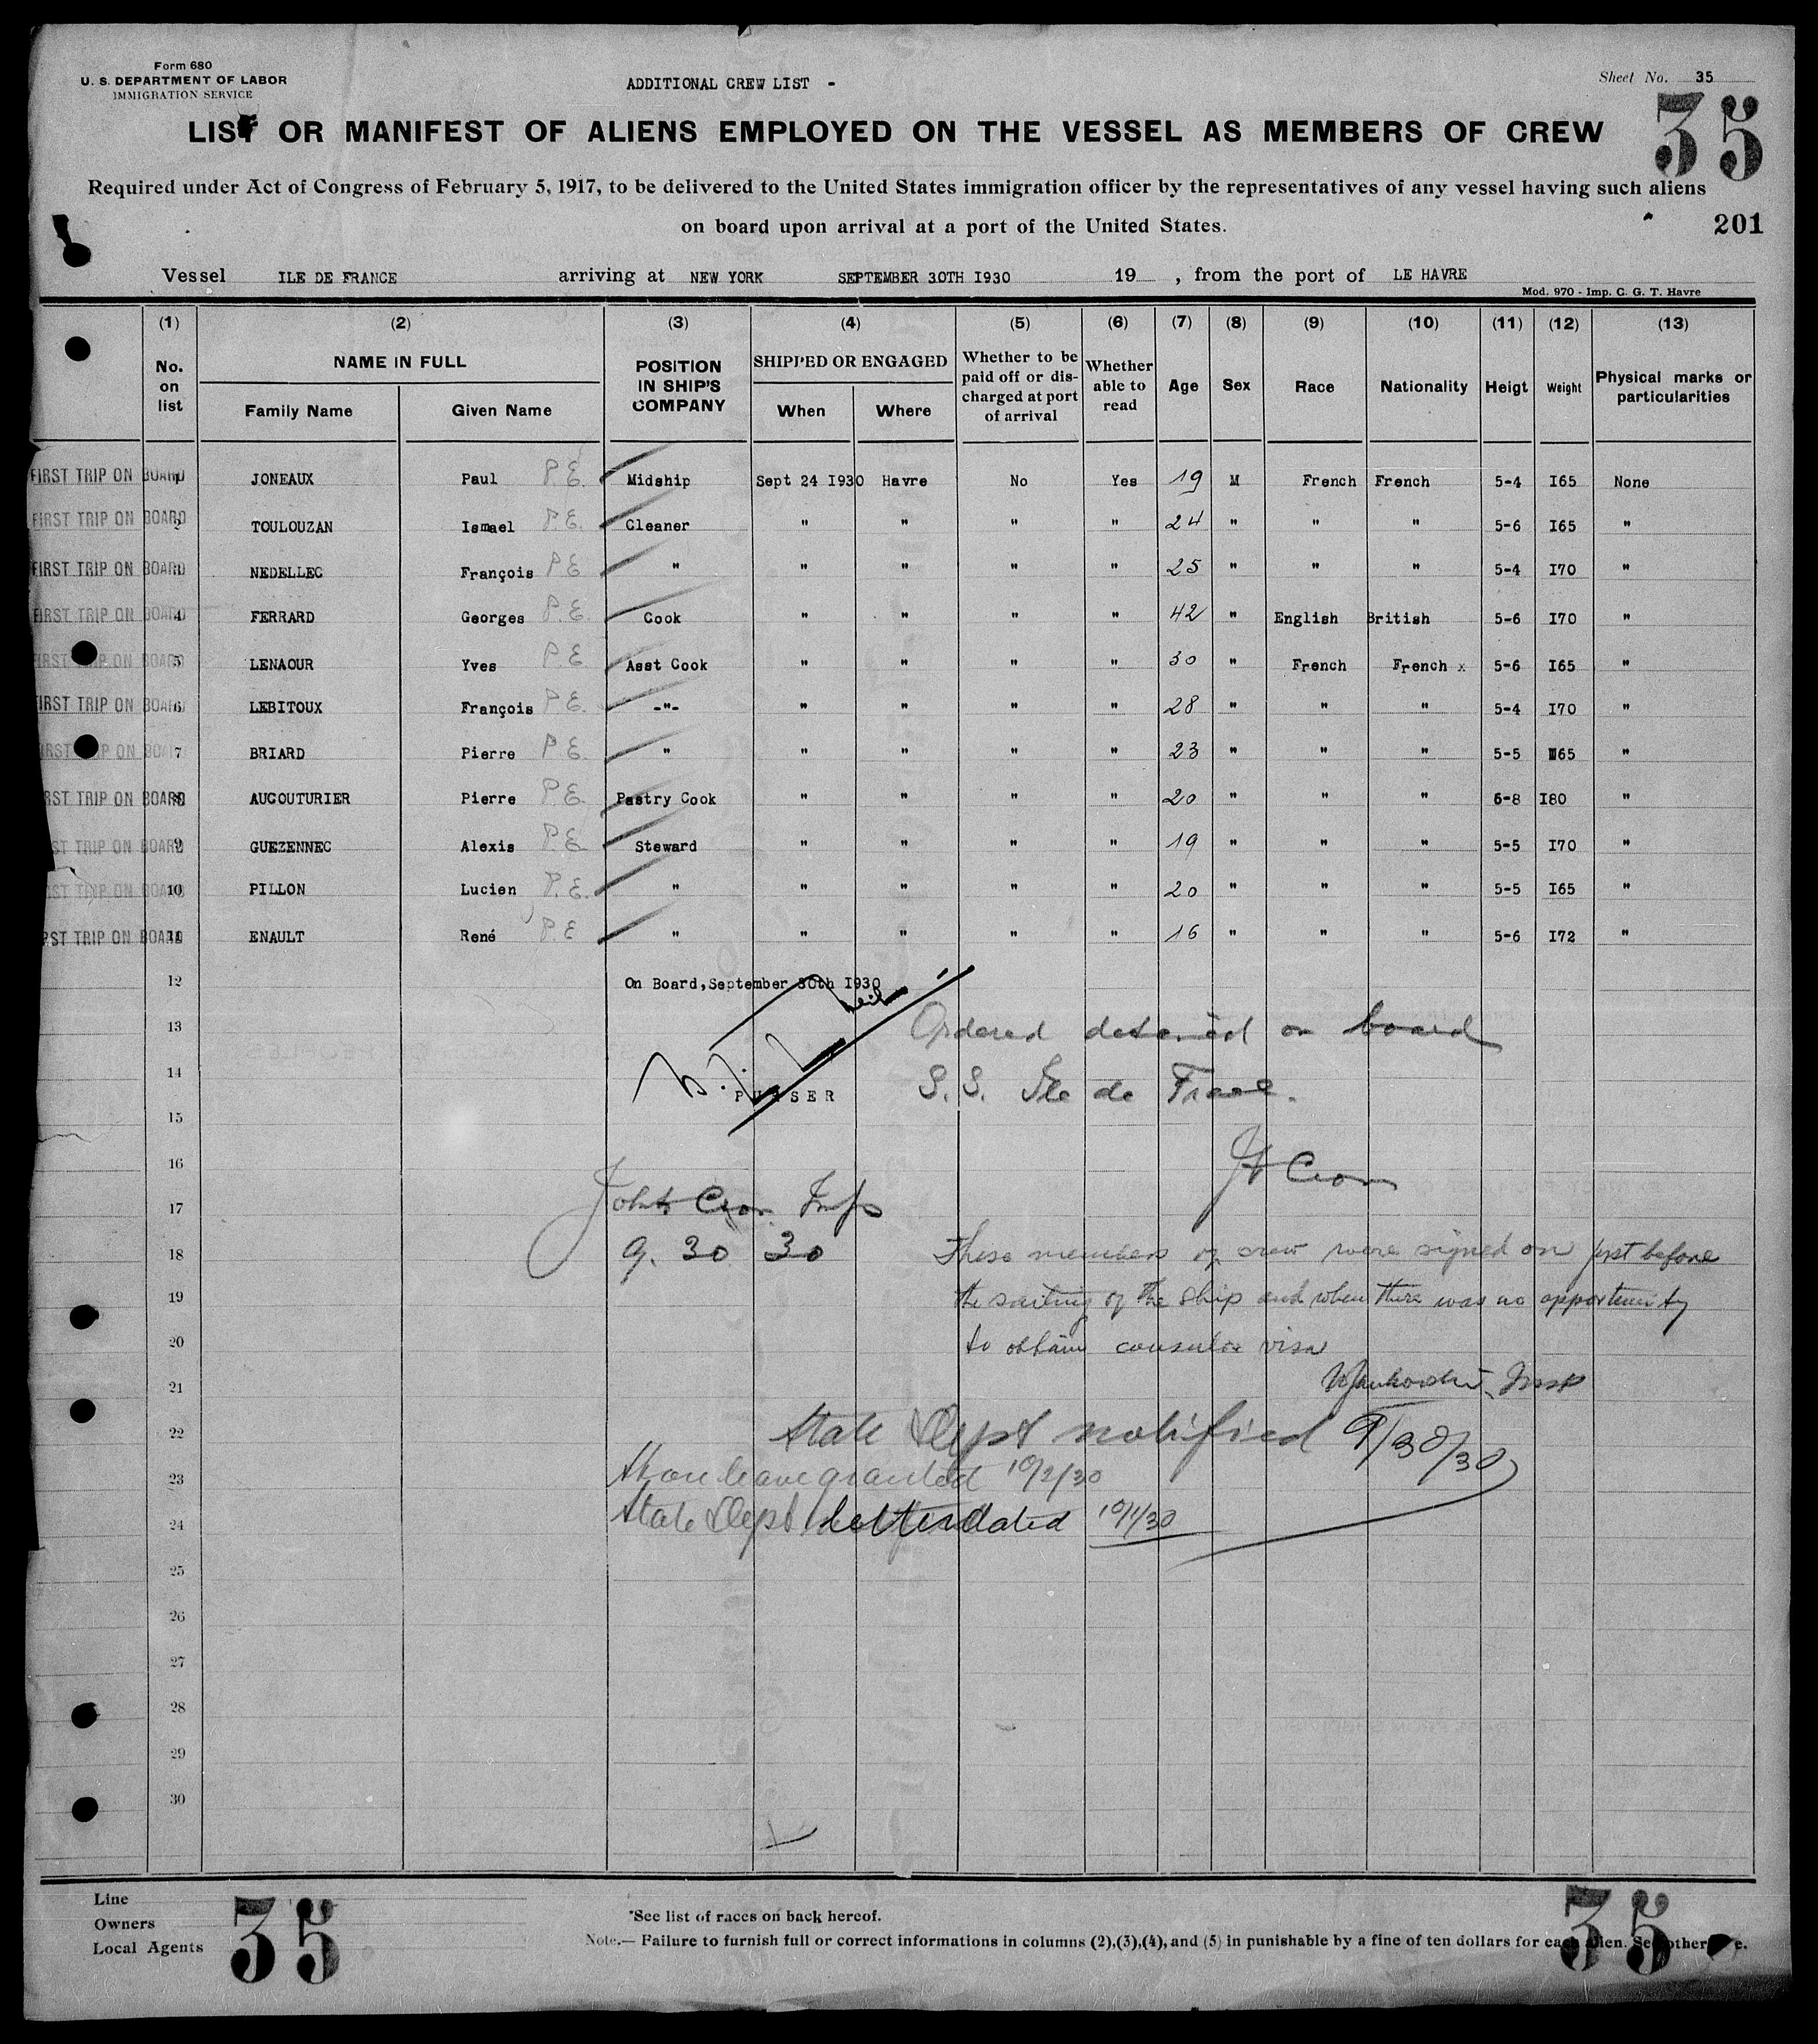 Form 680
U. S. DEPARTMENT OF LABOR
IMMIGRATION SERVICE
ADDITIONAL CREW LIST -
Sheet No. 35
35
LIST OR MANIFEST OF ALIENS EMPLOYED ON THE VESSEL AS MEMBERS OF CREW
Required under Act of Congress of February 5, 1917, to be delivered to the United States immigration officer by the representatives of any vessel having such aliens
on board upon arrival at a port of the United States.
201
Vessel ILE DE FRANCE arriving at NEW YORK SEPTEMBER 30TH I930 19 , from the port of LE HAVRE
Mod. 970 - Imp. C. G. T. Havre
(1) (2) (3) (4) (5) (6) (7) (8) (9) (10) (11) (12) (13)
No. on list NAME IN FULL Family Name Given Name POSITION IN SHIP'S COMPANY SHIPPED OR ENGAGED When Where Whether to be paid off or discharged at port of arrival Whether able to read Age Sex Race Nationality Heigt Weight Physical marks or particularities
FIRST TRIP ON BOARD 1 JONEAUX Paul P.E. Midship Sept 24 I930 Havre No Yes 19 M French French 5-4 I65 None
FIRST TRIP ON BOARD 2 TOULOUZAN Ismael P.E. Cleaner " " " " 24 " " " 5-6 I65 "
FIRST TRIP ON BOARD NEDELLEC François P.E " " " " " 25 " " " 5-4 I70 "
FIRST TRIP ON BOARD 4 FERRARD Georges P.E. Cook " " " " 42 " English British 5-6 I70 "
FIRST TRIP ON BOARD 5 LENAOUR Yves P.E Asst Cook " " " " 30 " French French x 5-6 I65 "
FIRST TRIP ON BOARD 6 LEBITOUX François P.E. -"- " " " " 28 " " " 5-4 I70 "
FIRST TRIP ON BOARD 7 BRIARD Pierre P.E. " " " " " 23 " " " 5-5 I65 "
FIRST TRIP ON BOARD 8 AUGOUTURIER Pierre P.E. Pastry Cook " " " " 20 " " " 6-8 I80 "
FIRST TRIP ON BOARD 9 GUEZENNEC Alexis P.E. Steward " " " " 19 " " " 5-5 I70 "
FIRST TRIP ON BOARD 10 PILLON Lucien P.E. " " " " " 20 " " " 5-5 I65 "
FIRST TRIP ON BOARD 11 ENAULT René P.E " " " " " 16 " " " 5-6 I72 "
12 On Board, September 30th I930
13 Ordered detained on board
14 S.S. Ile de France.
PURSER
15
16
17 Insp
18 9. 30 30 These members of crew were signed on just before
19 the sailing of the ship and when there was no opportunity
20 to obtain consular visa
21 Insp
22 State Dept notified 9/30/30
23 Shore leave granted 10/2/30
24 State Dept letter dated 10/1/30
25
26
27
28
29
30
Line
Owners
Local Agents
35
*See list of races on back hereof.
Note.— Failure to furnish full or correct informations in columns (2),(3),(4), and (5) in punishable by a fine of ten dollars for each alien. See other
35